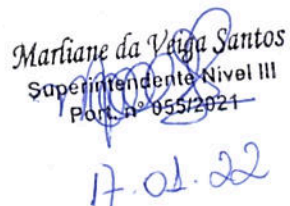 Marliane da Veiga Santos
Superintendente Nivel III
Port. nº 055/2021
17.01.22